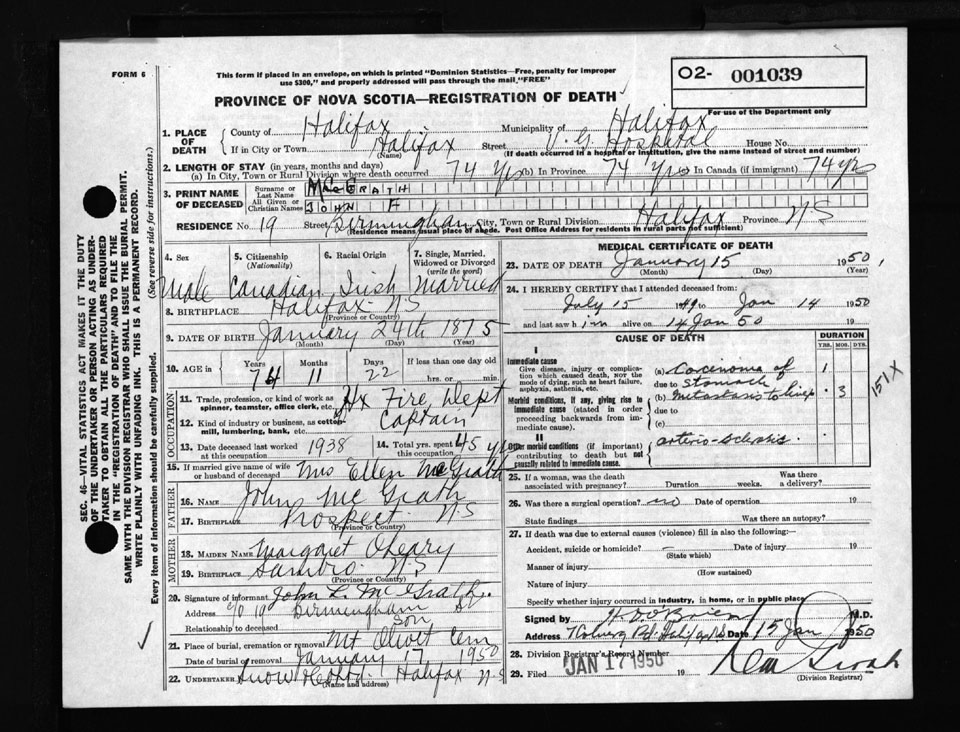 FORM 6
This form if placed in an envelope, on which is printed "Dominion Statistics—Free, penalty for improper
use $300," and properly addressed will pass through the mail "FREE"
O2- 001039
For use of the Department only
PROVINCE OF NOVA SCOTIA—REGISTRATION OF DEATH
1. PLACE OF DEATH
County of Halifax Municipality of Halifax
If in City or Town Halifax Street V. G Hospital House No.
(Name) (If death occurred in a hospital or institution, give the name instead of street and number)
2. LENGTH OF STAY (in years, months and days)
(a) In City, Town or Rural Division where death occurred 74 yrs (b) In Province 74 yrs In Canada (if immigrant) 74 yrs
3. PRINT NAME OF DECEASED
Surname or Last Name McGRATH
All Given or Christian Names JOHN F
RESIDENCE No. 19 Street Birmingham City, Town or Rural Division Halifax Province N S
(Residence means usual place of abode. Post Office Address for residents in rural parts not sufficient)
4. Sex
5. Citizenship (Nationality)
6. Racial Origin
7. Single, Married, Widowed or Divorced (write the word)
Male Canadian Irish Married
8. BIRTHPLACE Halifax N S
(Province or Country)
9. DATE OF BIRTH January 24th 1875
(Month) (Day) (Year)
10. AGE in Years Months Days If less than one day old
74 11 22 hrs. or min.
OCCUPATION
11. Trade, profession, or kind of work as spinner, teamster, office clerk, etc. Hx Fire Dept
12. Kind of industry or business, as cotton-mill, lumbering, bank, etc. Captain
13. Date deceased last worked at this occupation 1938
14. Total yrs. spent in this occupation 45 yrs
15. If married give name of wife or husband of deceased Mrs Ellen McGrath
FATHER
16. Name John McGrath
17. Birthplace Prospect N S
(Province or Country)
MOTHER
18. Maiden Name Margaret O'Leary
19. Birthplace Sambro N.S
(Province or Country)
20. Signature of informant John L. McGrath.
Address 19 Birmingham St
Relationship to deceased Son
21. Place of burial, cremation or removal Mt Olivet Cem
Date of burial or removal January 17 1950
22. Undertaker Snow & Co Ltd. Halifax N S
(Name and address)
MEDICAL CERTIFICATE OF DEATH
23. DATE OF DEATH January 15 1950
(Month) (Day) (Year)
24. I HEREBY CERTIFY that I attended deceased from:
July 15 1949 to Jan 14 1950
and last saw him alive on 14 Jan 50 19
CAUSE OF DEATH
DURATION
YRS. MOS. DYS.
I
Immediate cause
Give disease, injury or complication which caused death, not the mode of dying, such as heart failure, asphyxia, asthenia, etc.
(a) Carcinoma of Stomach 1
due to
Morbid conditions, if any, giving rise to immediate cause (stated in order proceeding backwards from immediate cause).
(b) Metastasis to liver 3
due to
(c)
II
Other morbid conditions (if important) contributing to death but not causally related to immediate cause.
arterio-sclerosis.
151X
25. If a woman, was the death associated with pregnancy? Duration weeks. Was there a delivery?
26. Was there a surgical operation? no Date of operation 19
State findings Was there an autopsy?
27. If death was due to external causes (violence) fill in also the following:—
Accident, suicide or homicide? — Date of injury 19
(State which)
Manner of injury
(How sustained)
Nature of injury
Specify whether injury occurred in industry, in home, or in public place
Signed by H. D. O'Brien M.D.
Address Date 15 Jan 1950
28. Division Registrar's Record Number
29. Filed JAN 17 1950 19
(Division Registrar)
SEC. 46—VITAL STATISTICS ACT MAKES IT THE DUTY
OF THE UNDERTAKER OR PERSON ACTING AS UNDER-
TAKER TO OBTAIN ALL THE PARTICULARS REQUIRED
IN THE "REGISTRATION OF DEATH" AND TO FILE THE
SAME WITH THE DIVISION REGISTRAR WHO SHALL ISSUE THE BURIAL PERMIT.
WRITE PLAINLY WITH UNFADING INK. THIS IS A PERMANENT RECORD.
Every item of information should be carefully supplied. (See reverse side for instructions.)